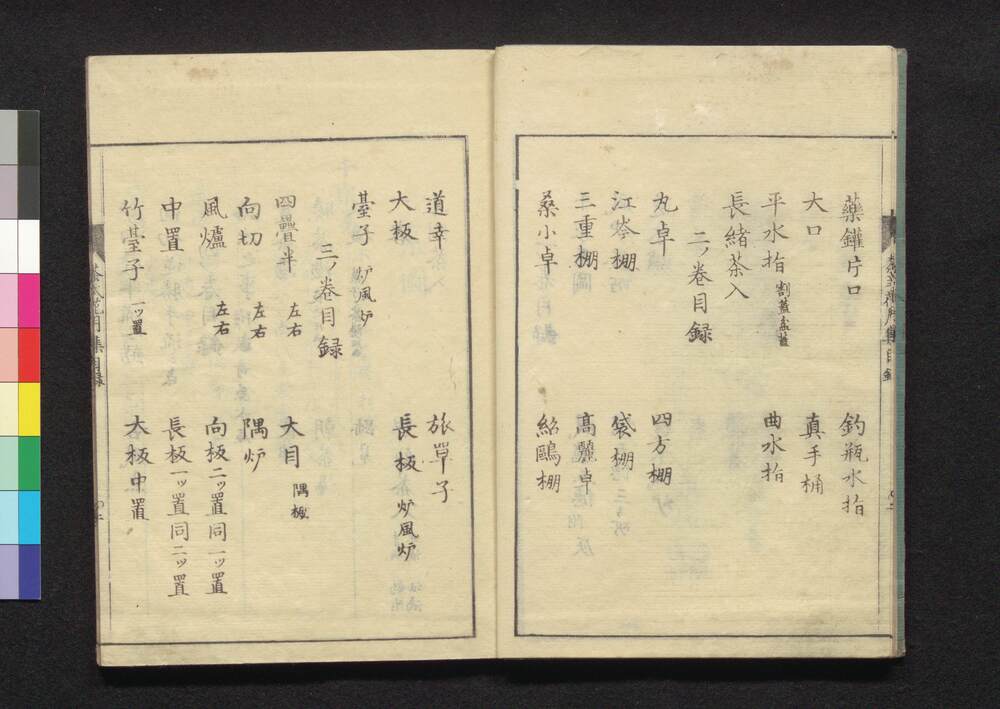 藥鑵片口　釣瓶水指
大口　真手桶
平水指 割蓋盖置　曲水指
長緒茶入
二ノ巻目録
丸卓　四方棚
江岑棚　袋棚
三重棚　高麗卓
桑小卓　紹鷗棚
道幸　旅箪子
大板　長板 炉風炉
臺子 炉風炉
三ノ巻目録
四疊半 左右　大目 隅板
向切 左右　隅炉
風爐 左右　向板 二ッ置 同 一ッ置
中置　長板 一ッ置 同 二ッ置
竹臺子 一ッ置　大板中置
目録
月集目録